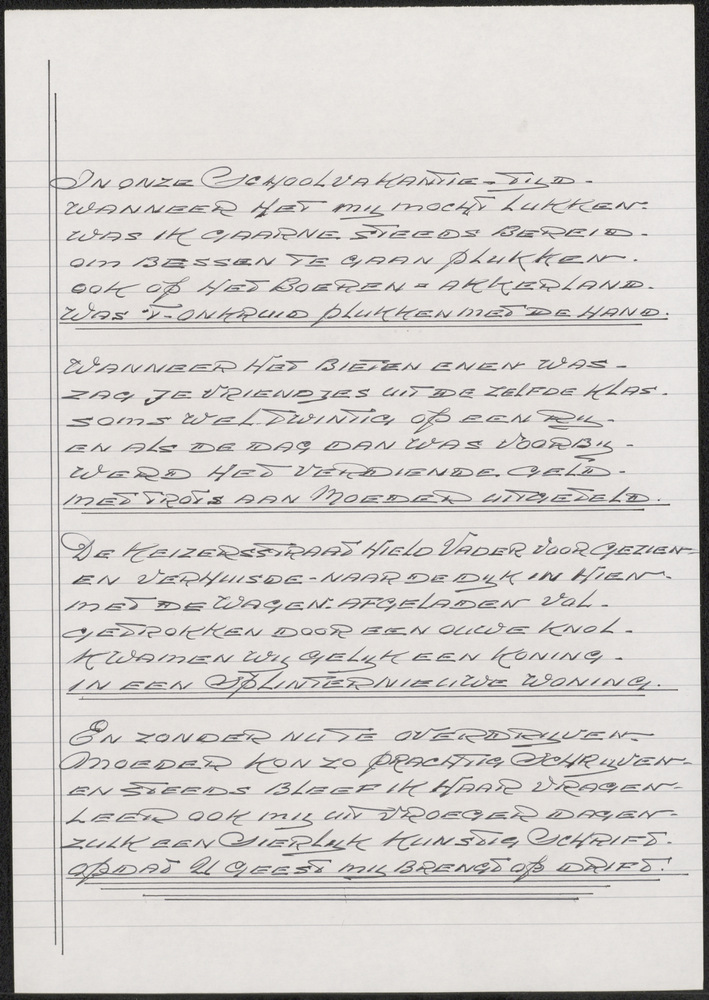 In onze Schoolvakantie-Tijd-
wanneer het mij mocht lukken-
was ik gaarne steeds bereid-
om bessen te gaan plukken-
ook op het boeren = akkerland.
was 't-onkruid plukken met de hand.
wanneer het bieten enen was-
zag je vriendjes uit de zelfde klas.
soms wel twintig op een Rij-
en als de dag dan was voorbij-
werd het verdiende. geld-
met trots aan Moeder uitgeteld.
De Keizersstraat hield Vader voor gezien-
en verhuisde-naar de dijk in Hien-
met de wagen. afgeladen vol.
getrokken door een ouwe knol-
kwamen wij gelijk een koning-
in een splinternieuwe woning.
En zonder nu te overdrijven-
Moeder kon zo prachtig Schrijven-
en steeds bleef ik haar vragen-
leer ook mij uit vroeger dagen-
zulk een Sierlijk kunstig Schrift.
opdat U geest mij brengt op drift!